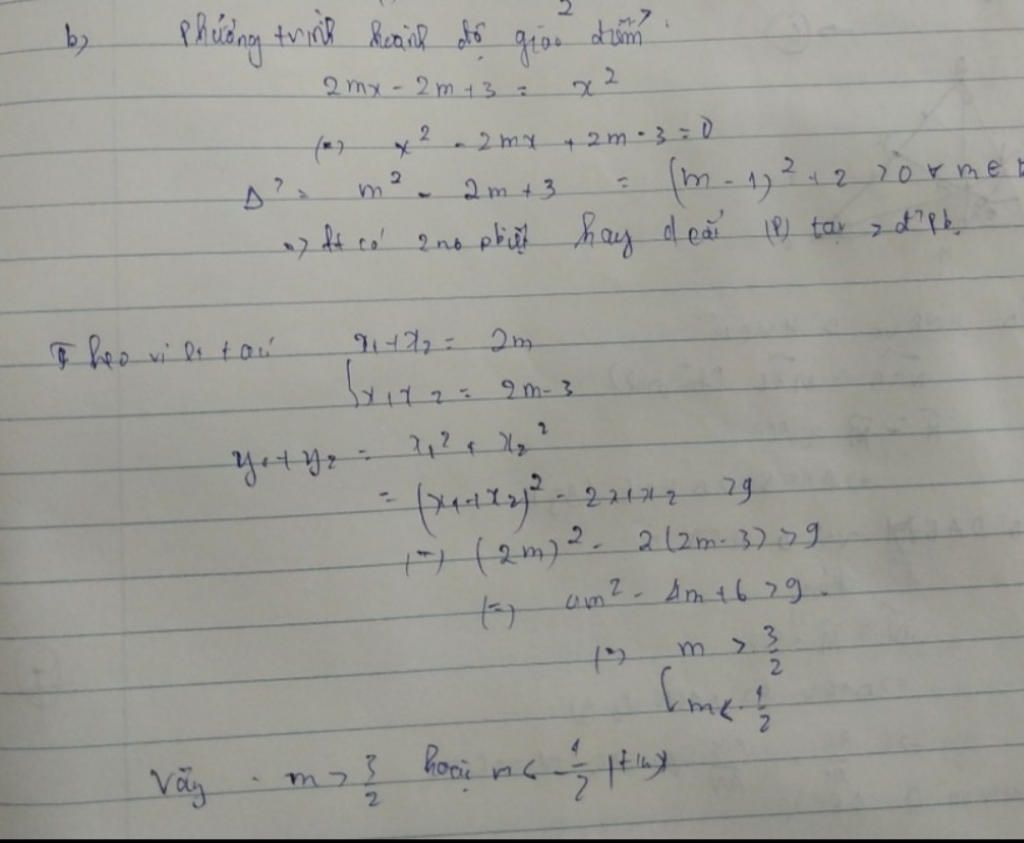 b) Phương trình hoành độ giao điểm
2mx - 2m + 3 = x²
(=) x² - 2mx + 2m - 3 = 0
Δ' = m² - 2m + 3 = (m - 1)² + 2 > 0 ∀ m ∈
=> pt có 2 no pbiệt hay d cắt (P) tại 2 đ' pb.
Theo vi et ta có x₁ + x₂ = 2m
x₁x₂ = 2m - 3
y₁ + y₂ = x₁² + x₂²
= (x₁ + x₂)² - 2x₁x₂ > 9
(=) (2m)² - 2(2m - 3) > 9
(=) 4m² - 4m + 6 > 9.
(=) m > 3/2
m < -1/2
Vậy m > 3/2 hoặc m < -1/2 (t/m)